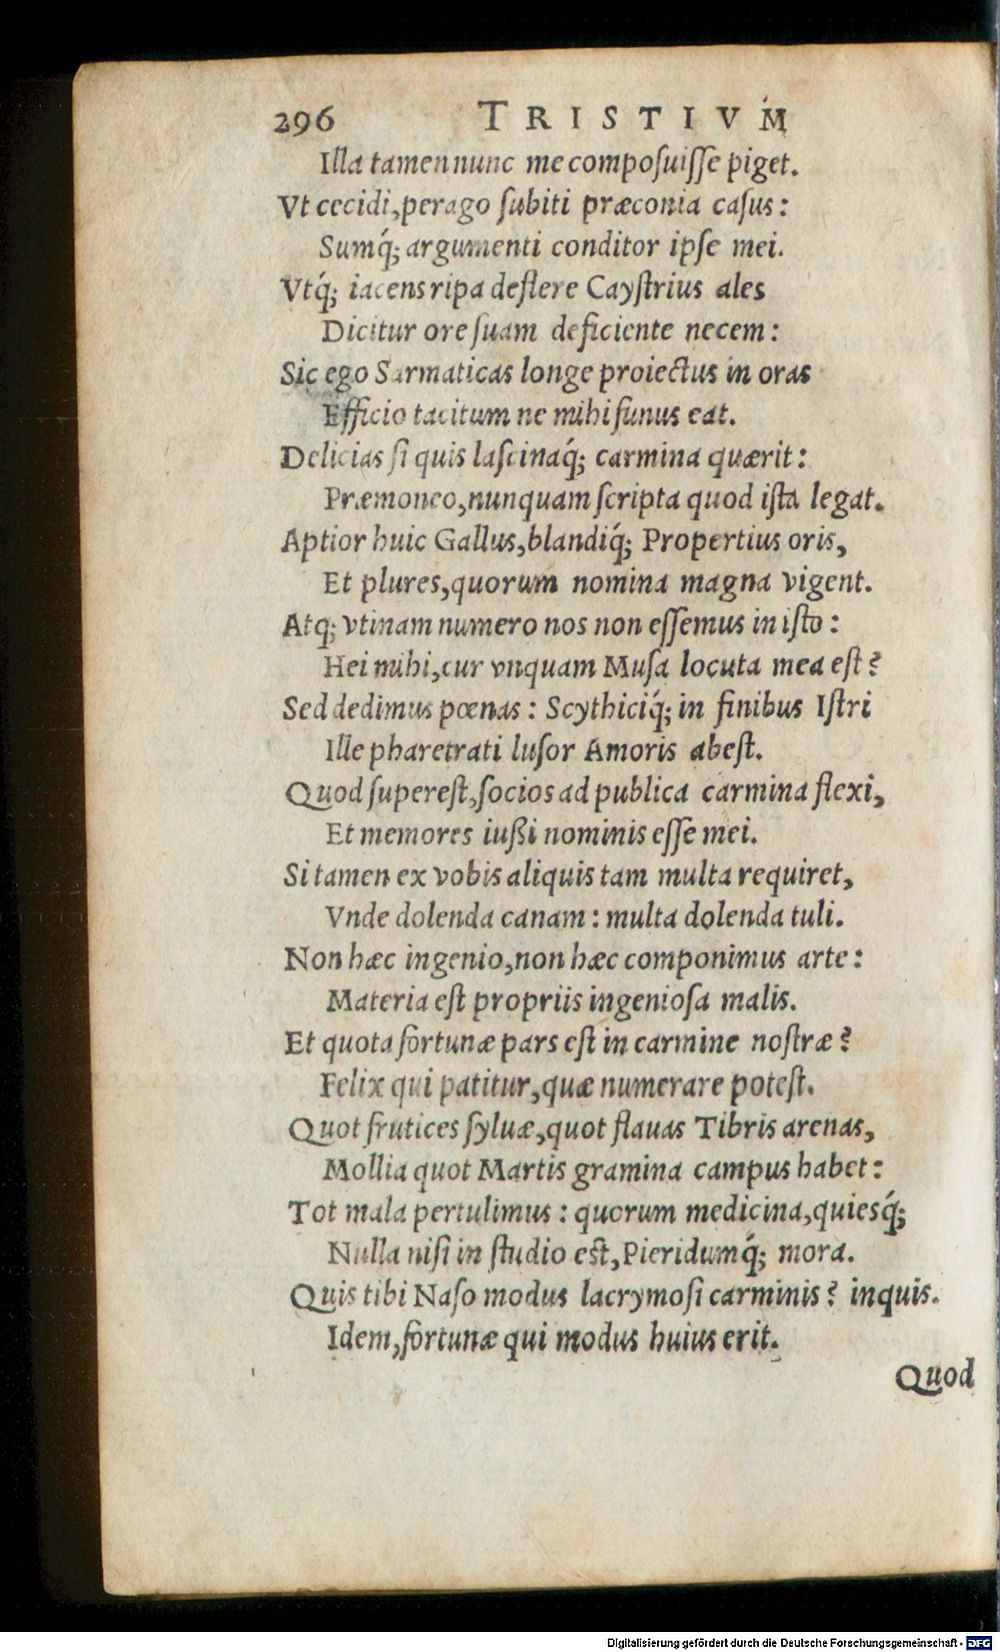 296 TRISTIVM
Illa tamen nunc me composuiſſe piget.
Vt cecidi, perago ſubiti præconia caſus:
Sumq́; argumenti conditor ipſe mei.
Vtq́; iacens ripa deflere Cayſtrius ales
Dicitur ore ſuam deficiente necem:
Sic ego Sarmaticas longe proiectus in oras
Efficio tacitum ne mihi funus eat.
Delicias ſi quis laſciuaq́; carmina quærit:
Præmoneo, nunquam ſcripta quod iſta legat.
Aptior huic Gallus, blandiq́; Propertius oris,
Et plures, quorum nomina magna vigent.
Atq; vtinam numero nos non eſſemus in iſto:
Hei mihi, cur vnquam Muſa locuta mea eſt?
Sed dedimus pœnas: Scythiciq́; in finibus Iſtri
Ille pharetrati luſor Amoris abeſt.
Quod ſupereſt, ſocios ad publica carmina flexi,
Et memores iußi nominis eſſe mei.
Si tamen ex vobis aliquis tam multa requiret,
Vnde dolenda canam: multa dolenda tuli.
Non hæc ingenio, non hæc componimus arte:
Materia eſt propriis ingenioſa malis.
Et quota fortunæ pars eſt in carmine noſtræ?
Felix qui patitur, quæ numerare poteſt.
Quot frutices ſyluæ, quot flauas Tibris arenas,
Mollia quot Martis gramina campus habet:
Tot mala pertulimus: quorum medicina, quiesq́;
Nulla niſi in ſtudio eſt, Pieridumq́; mora.
Quis tibi Naſo modus lacrymoſi carminis? inquis.
Idem, fortunæ qui modus huius erit.
Quod
Digitalisierung gefördert durch die Deutsche Forschungsgemeinschaft - DFG